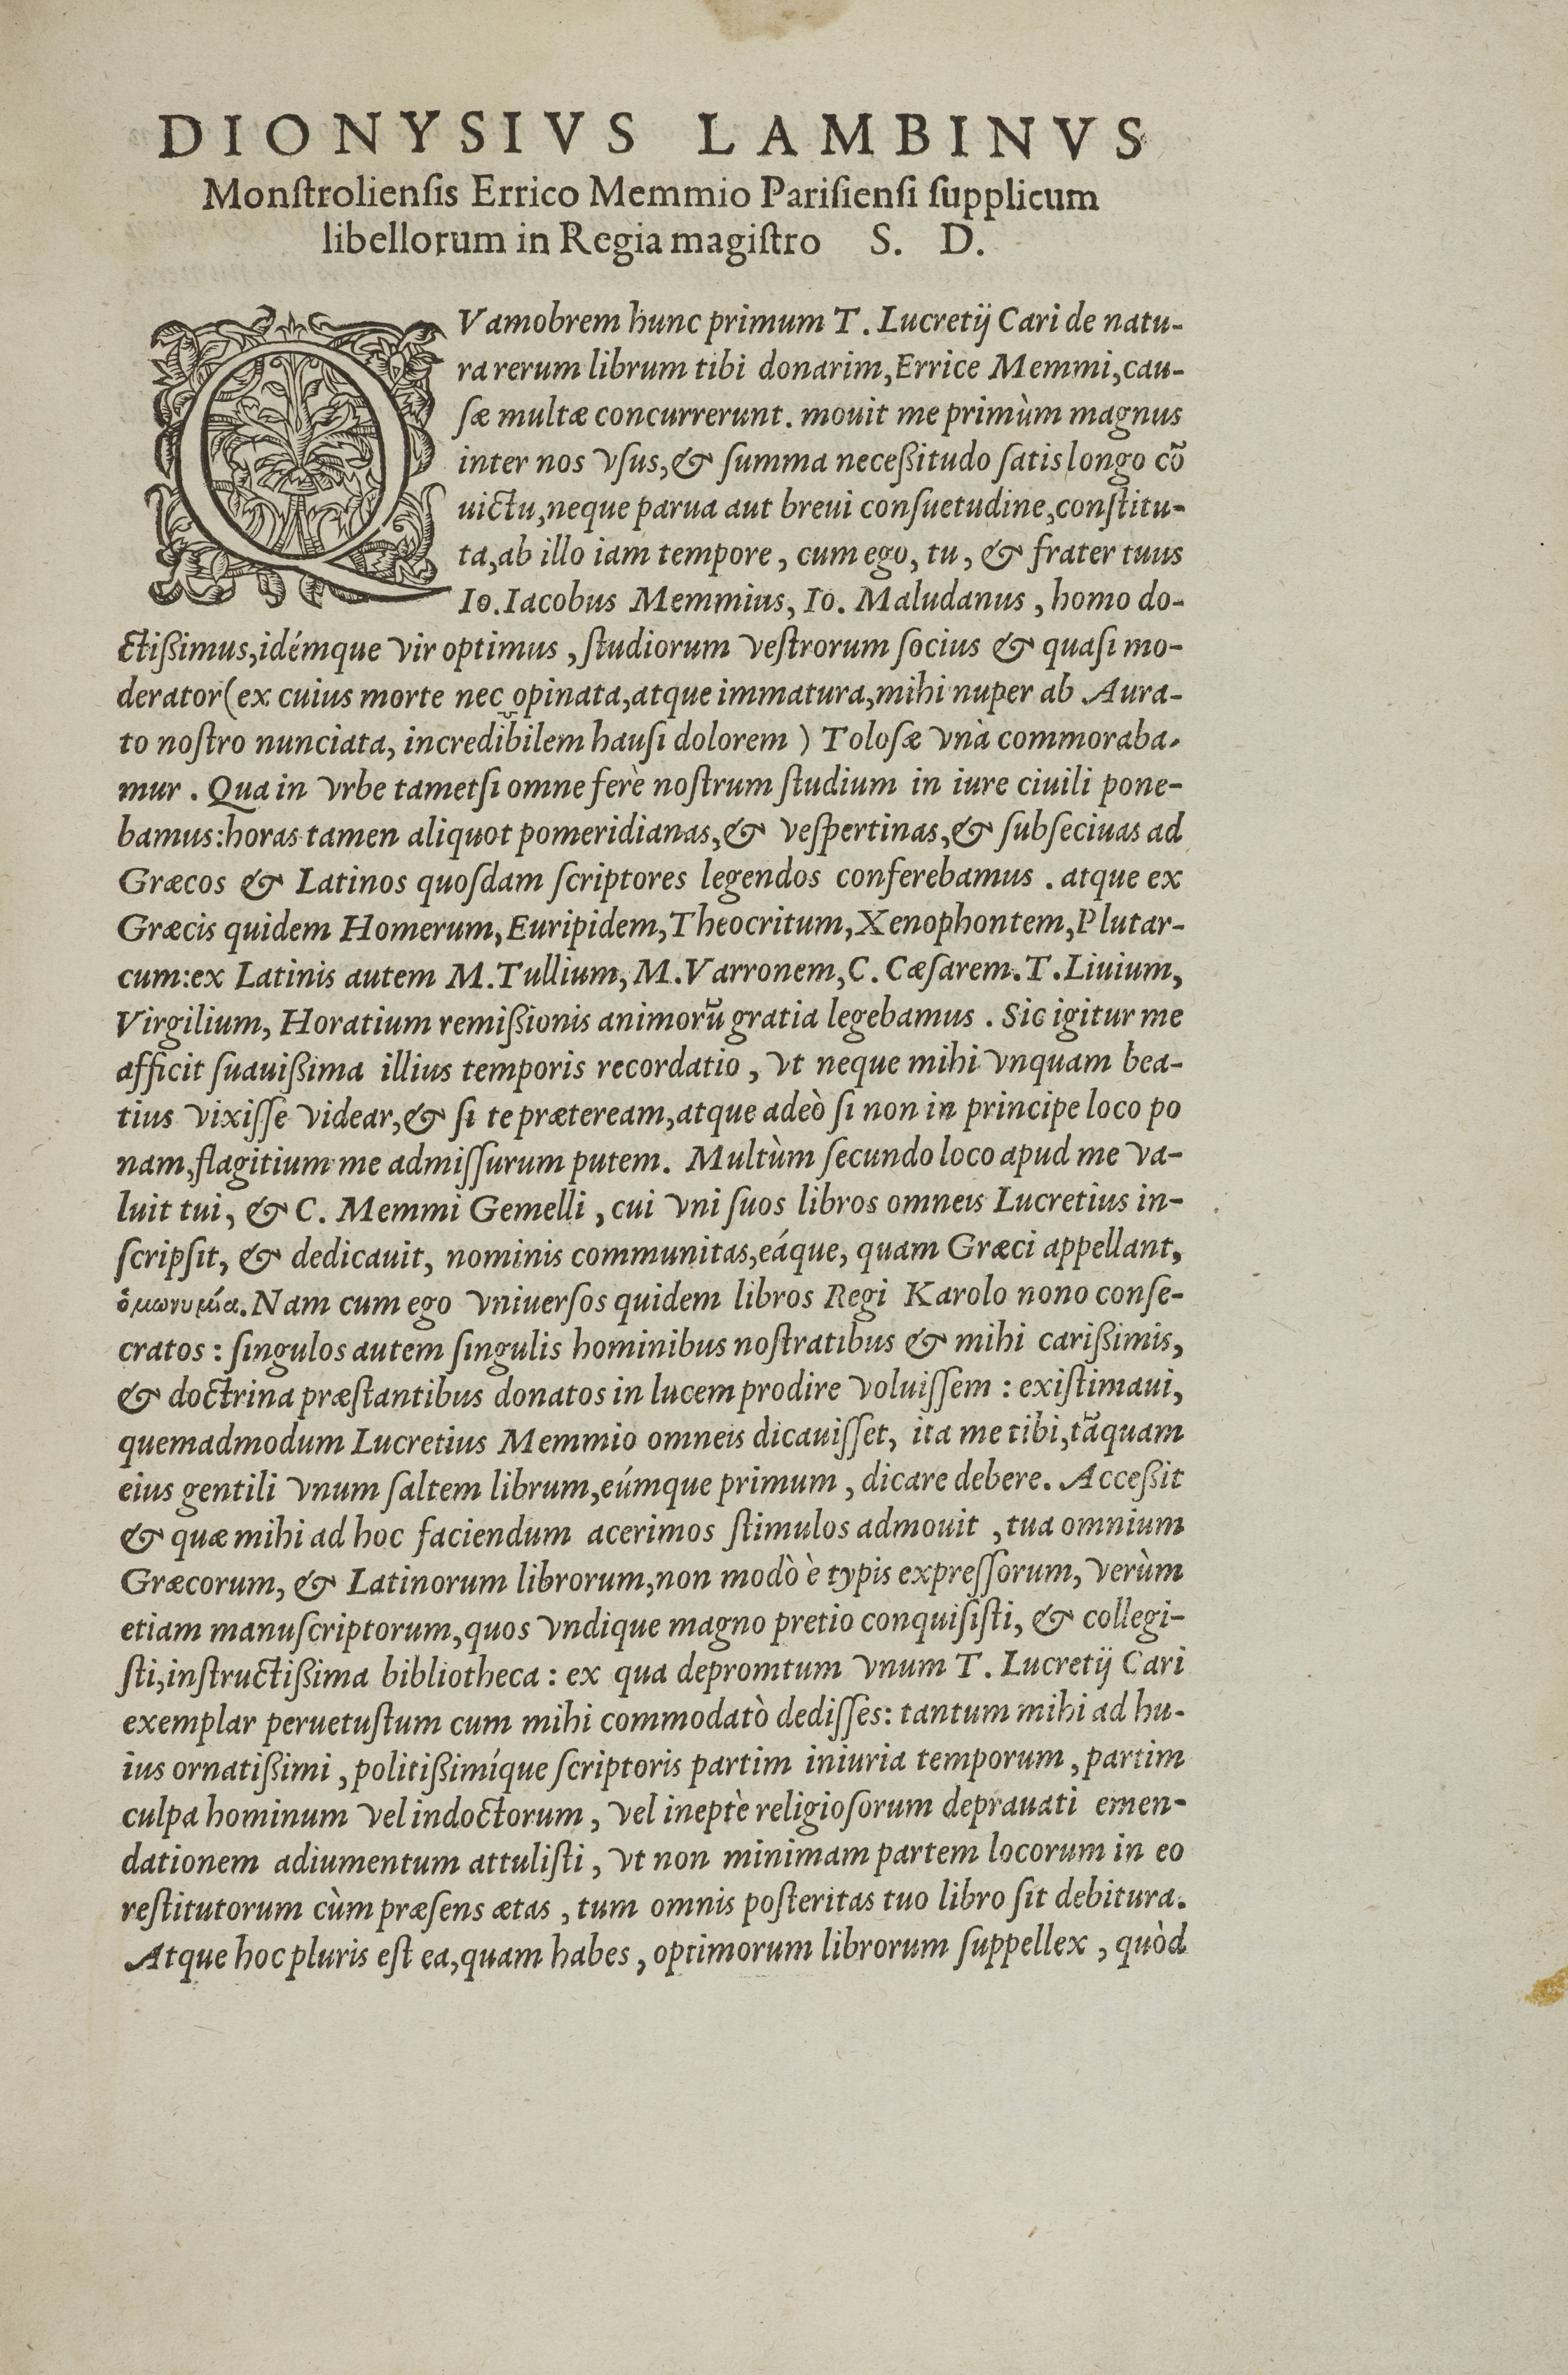 DIONYSIVS LAMBINVS
Monſtrolienſis Errico Memmio Pariſienſi ſupplicum
libellorum in Regia magiſtro S. D.
QVamobrem hunc primum T. Lucretij Cari de natu-
ra rerum librum tibi donarim, Errice Memmi, cau-
ſæ multæ concurrerunt. mouit me primùm magnus
inter nos vſus, & ſumma neceßitudo ſatis longo cõ
uictu, neque parua aut breui conſuetudine, conſtitu-
ta, ab illo iam tempore, cum ego, tu, & frater tuus
Io. Iacobus Memmius, Io. Maludanus, homo do-
ctißimus, idémque vir optimus, ſtudiorum veſtrorum ſocius & quaſi mo-
derator (ex cuius morte nec opinata, atque immatura, mihi nuper ab Aura-
to noſtro nunciata, incredibilem hauſi dolorem) Toloſæ vnà commoraba-
mur. Qua in vrbe tametſi omne ferè noſtrum ſtudium in iure ciuili pone-
bamus: horas tamen aliquot pomeridianas, & veſpertinas, & ſubſeciuas ad
Græcos & Latinos quoſdam ſcriptores legendos conferebamus. atque ex
Græcis quidem Homerum, Euripidem, Theocritum, Xenophontem, Plutar-
cum: ex Latinis autem M. Tullium, M. Varronem, C. Cæſarem. T. Liuium,
Virgilium, Horatium remißionis animorũ gratia legebamus. Sic igitur me
afficit ſuauißima illius temporis recordatio, vt neque mihi vnquam bea-
tius vixiſſe videar, & ſi te præteream, atque adeò ſi non in principe loco po
nam, flagitium me admiſſurum putem. Multùm ſecundo loco apud me va-
luit tui, & C. Memmi Gemelli, cui vni ſuos libros omneis Lucretius in-
ſcripſit, & dedicauit, nominis communitas, eáque, quam Græci appellant,
ὁμωνυμία. Nam cum ego vniuerſos quidem libros Regi Karolo nono conſe-
cratos: ſingulos autem ſingulis hominibus noſtratibus & mihi carißimis,
& doctrina præſtantibus donatos in lucem prodire voluiſſem: exiſtimaui,
quemadmodum Lucretius Memmio omneis dicauiſſet, ita me tibi, tãquam
eius gentili vnum ſaltem librum, eúmque primum, dicare debere. Acceßit
& quæ mihi ad hoc faciendum acerimos ſtimulos admouit, tua omnium
Græcorum, & Latinorum librorum, non modò è typis expreſſorum, verùm
etiam manuſcriptorum, quos vndique magno pretio conquiſiſti, & collegi-
ſti, inſtructißima bibliotheca: ex qua depromtum vnum T. Lucretij Cari
exemplar peruetuſtum cum mihi commodatò dediſſes: tantum mihi ad hu-
ius ornatißimi, politißimíque ſcriptoris partim iniuria temporum, partim
culpa hominum vel indoctorum, vel ineptè religioſorum deprauati emen-
dationem adiumentum attuliſti, vt non minimam partem locorum in eo
reſtitutorum cùm præſens ætas, tum omnis poſteritas tuo libro ſit debitura.
Atque hoc pluris eſt ea, quam habes, optimorum librorum ſuppellex, quòd